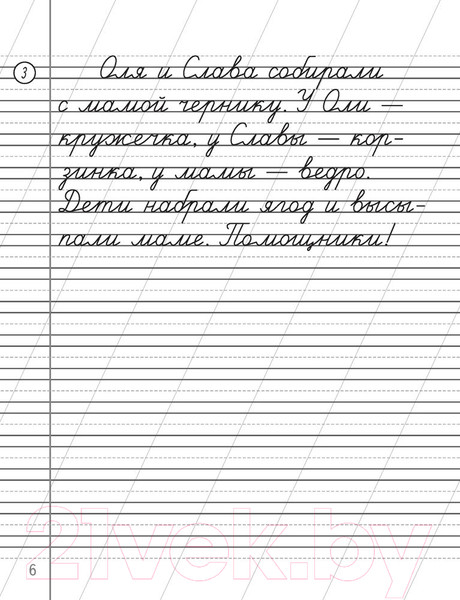 3
Оля и Слава собирали
с мамой чернику. У Оли —
кружечка, у Славы — кор-
зинка, у мамы — ведро.
Дети набрали ягод и высы-
пали маме. Помощники!
21vek.by
6